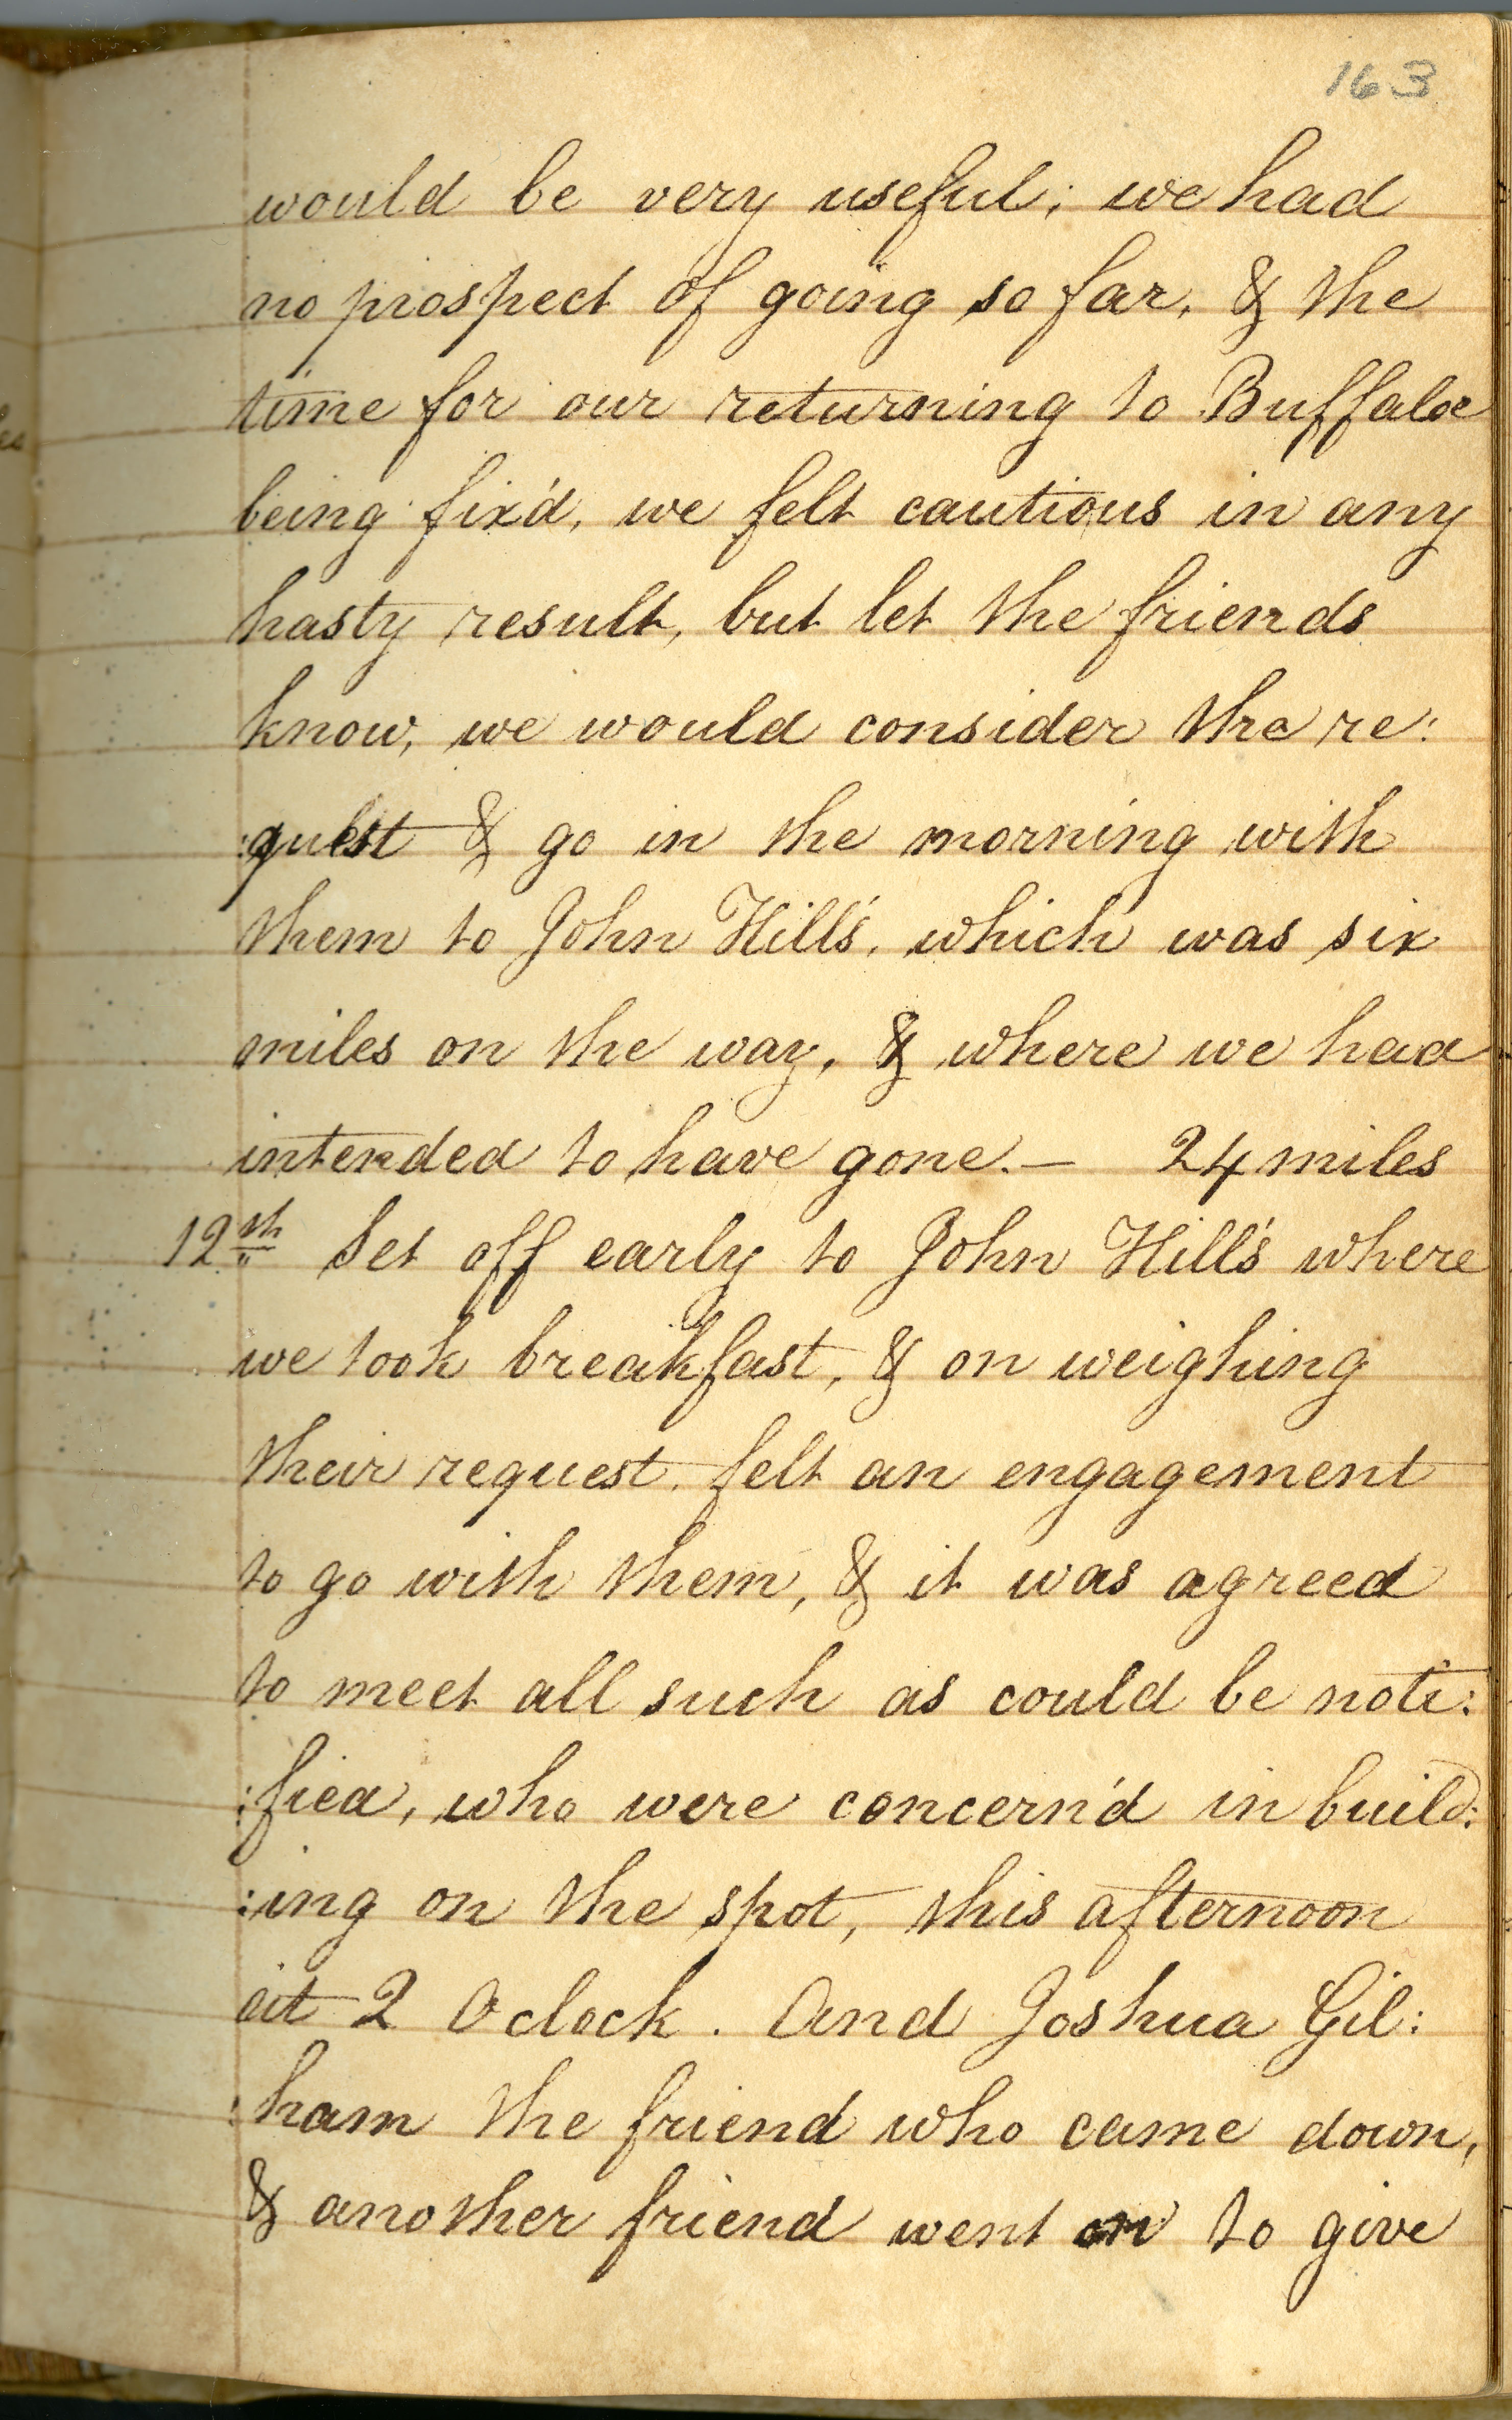 163
would be very useful; we had
no prospect of going so far, & the
time for our returning to Buffaloe
being fix'd, we felt cautious in any
hasty result, but let the friends
know, we would consider the re:
:quest & go in the morning with
them to John Hill's, which was six
miles on the way, & where we had
intended to have gone.— 24 miles
12th Set off early to John Hill's where
we took breakfast, & on weighing
their request, felt an engagement
to go with them, & it was agreed
to meet all such as could be noti:
:fied, who were concern'd in build:
:ing on the spot, this afternoon
at 2 Oclock. And Joshua Gil:
:ham the friend who came down,
& another friend went on to give